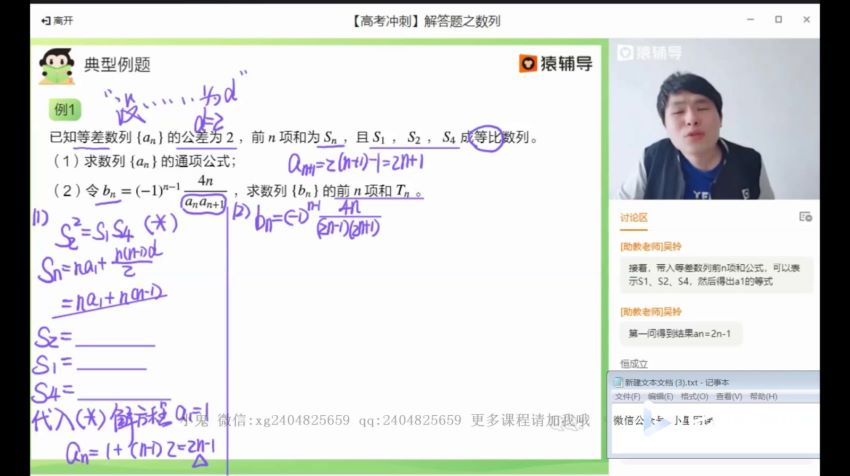 离开
【高考冲刺】解答题之数列
典型例题
猿辅导
猿辅导
例1
“设……为d”
d=2
已知等差数列 {aₙ} 的公差为 2，前 n 项和为 Sₙ，且 S₁，S₂，S₄ 成等比数列。
（1）求数列 {aₙ} 的通项公式；
aₙ₊₁=2(n+1)-1=2n+1
（2）令 bₙ = (−1)ⁿ⁻¹ 4n/(aₙaₙ₊₁)，求数列 {bₙ} 的前 n 项和 Tₙ。
(1) S₂²=S₁S₄ (*)
Sₙ=na₁+n(n-1)d/2
=na₁+n(n-1)
S₂=
S₁=
S₄=
代入(*)解方程 a₁=1
aₙ=1+(n-1)2=2n-1
(2) bₙ=(-1)ⁿ⁻¹ 4n/((2n-1)(2n+1))
小鬼 微信:xg2404825659 qq:2404825659 更多课程请加我哦
讨论区
[助教老师]吴拎
接着，带入等差数列前n项和公式，可以表
示S1、S2、S4，然后得出a1的等式
[助教老师]吴拎
第一问得到结果an=2n-1
恒成立
新建文本文档 (3).txt - 记事本
文件(F) 编辑(E) 格式(O) 查看(V) 帮助(H)
微信公众号